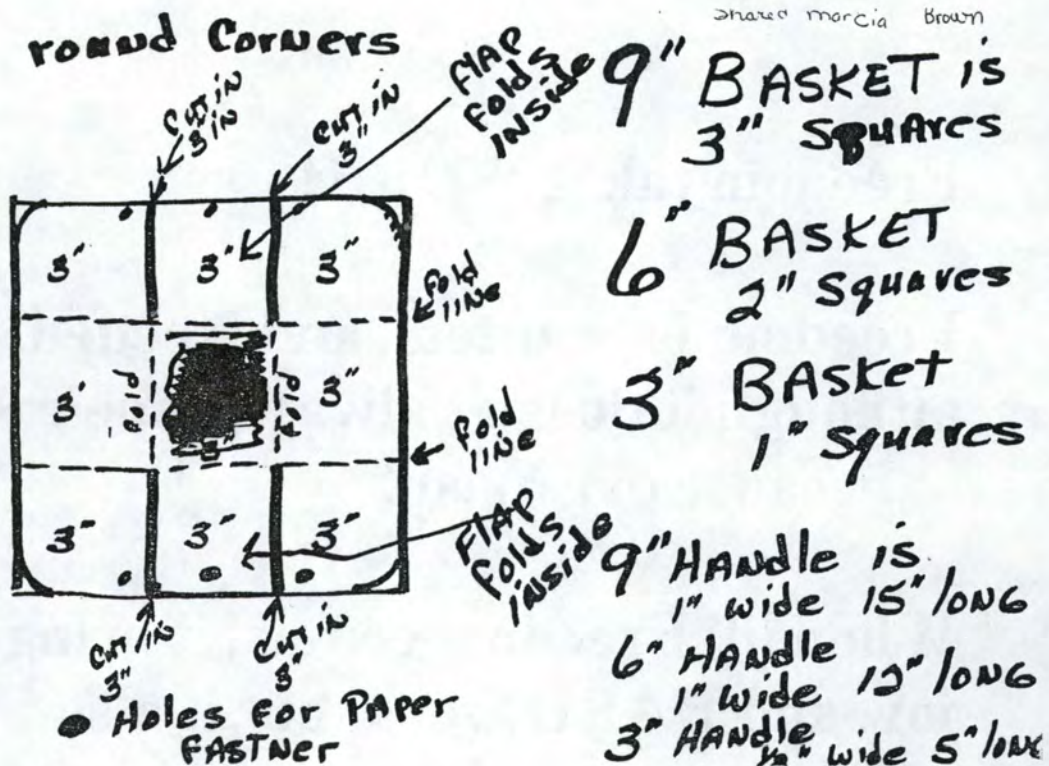 shared Marcia Brown
round Corners
Cut in
3 in
Cut in
3"
FlAP
folds
INSIDE
3"
3"
3"
fold
line
3"
fold
3"
fold
3"
fold
line
3"
3"
3"
FlAP
folds
inside
Cut in
3"
Cut in
3"
● Holes for PAPer
FASTner
9" BASKET is
3" SquAres
6" BASKET
2" Squares
3" BASket
1" Squares
9" HANdle is
1" wide 15" lONG
6" HANdle
1" wide 12" lONG
3" HANdle
1/2" wide 5" lONG